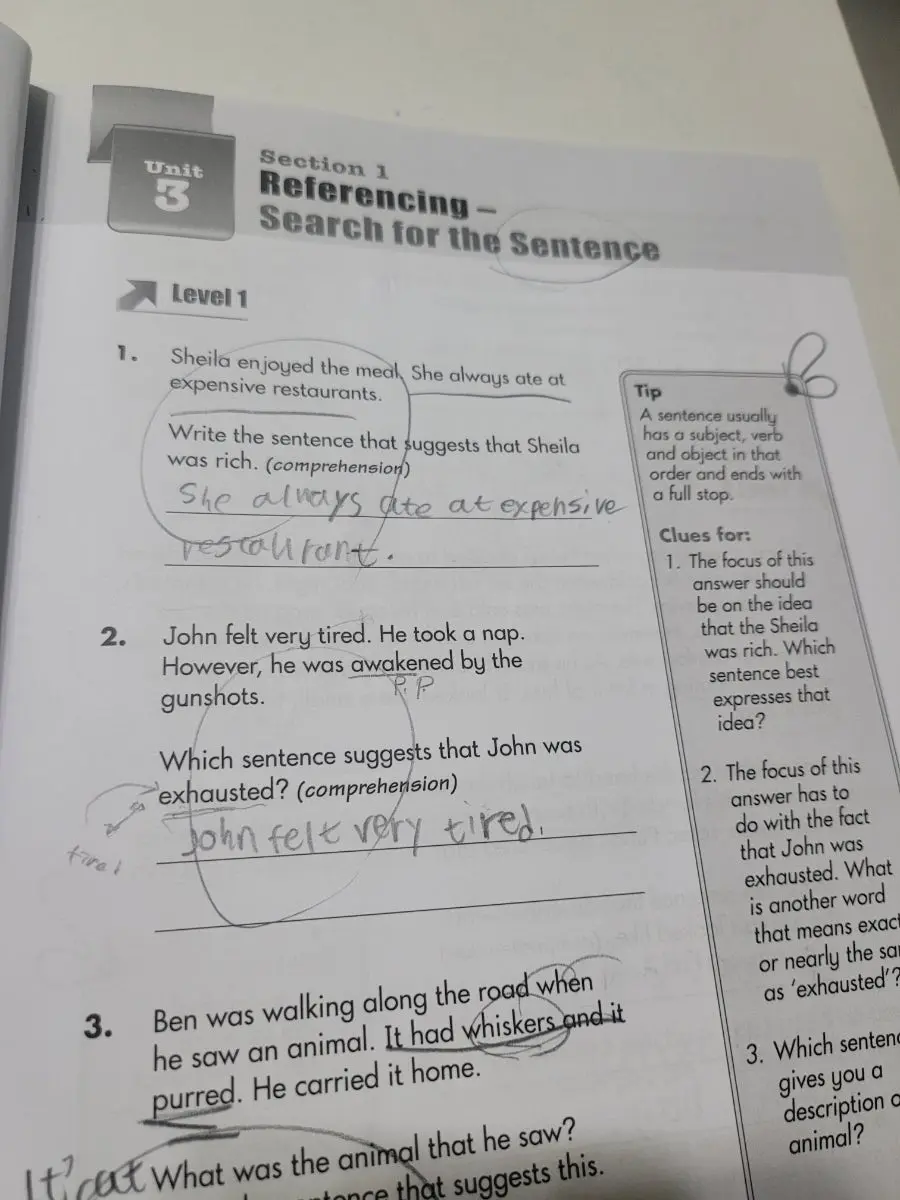 Unit
3
Section 1
Referencing –
Search for the Sentence
Level 1
1. Sheila enjoyed the meal. She always ate at
expensive restaurants.
Write the sentence that suggests that Sheila
was rich. (comprehension)
She always ate at expensive
restaurant.
2. John felt very tired. He took a nap.
However, he was awakened by the
gunshots.
P.P.
Which sentence suggests that John was
exhausted? (comprehension)
John felt very tired.
3. Ben was walking along the road when
he saw an animal. It had whiskers and it
purred. He carried it home.
What was the animal that he saw?
cat
that suggests this.
Tip
A sentence usually
has a subject, verb
and object in that
order and ends with
a full stop.
Clues for:
1. The focus of this
answer should
be on the idea
that the Sheila
was rich. Which
sentence best
expresses that
idea?
2. The focus of this
answer has to
do with the fact
that John was
exhausted. What
is another word
that means exact
or nearly the sa
as 'exhausted'?
3. Which sentenc
gives you a
description o
animal?